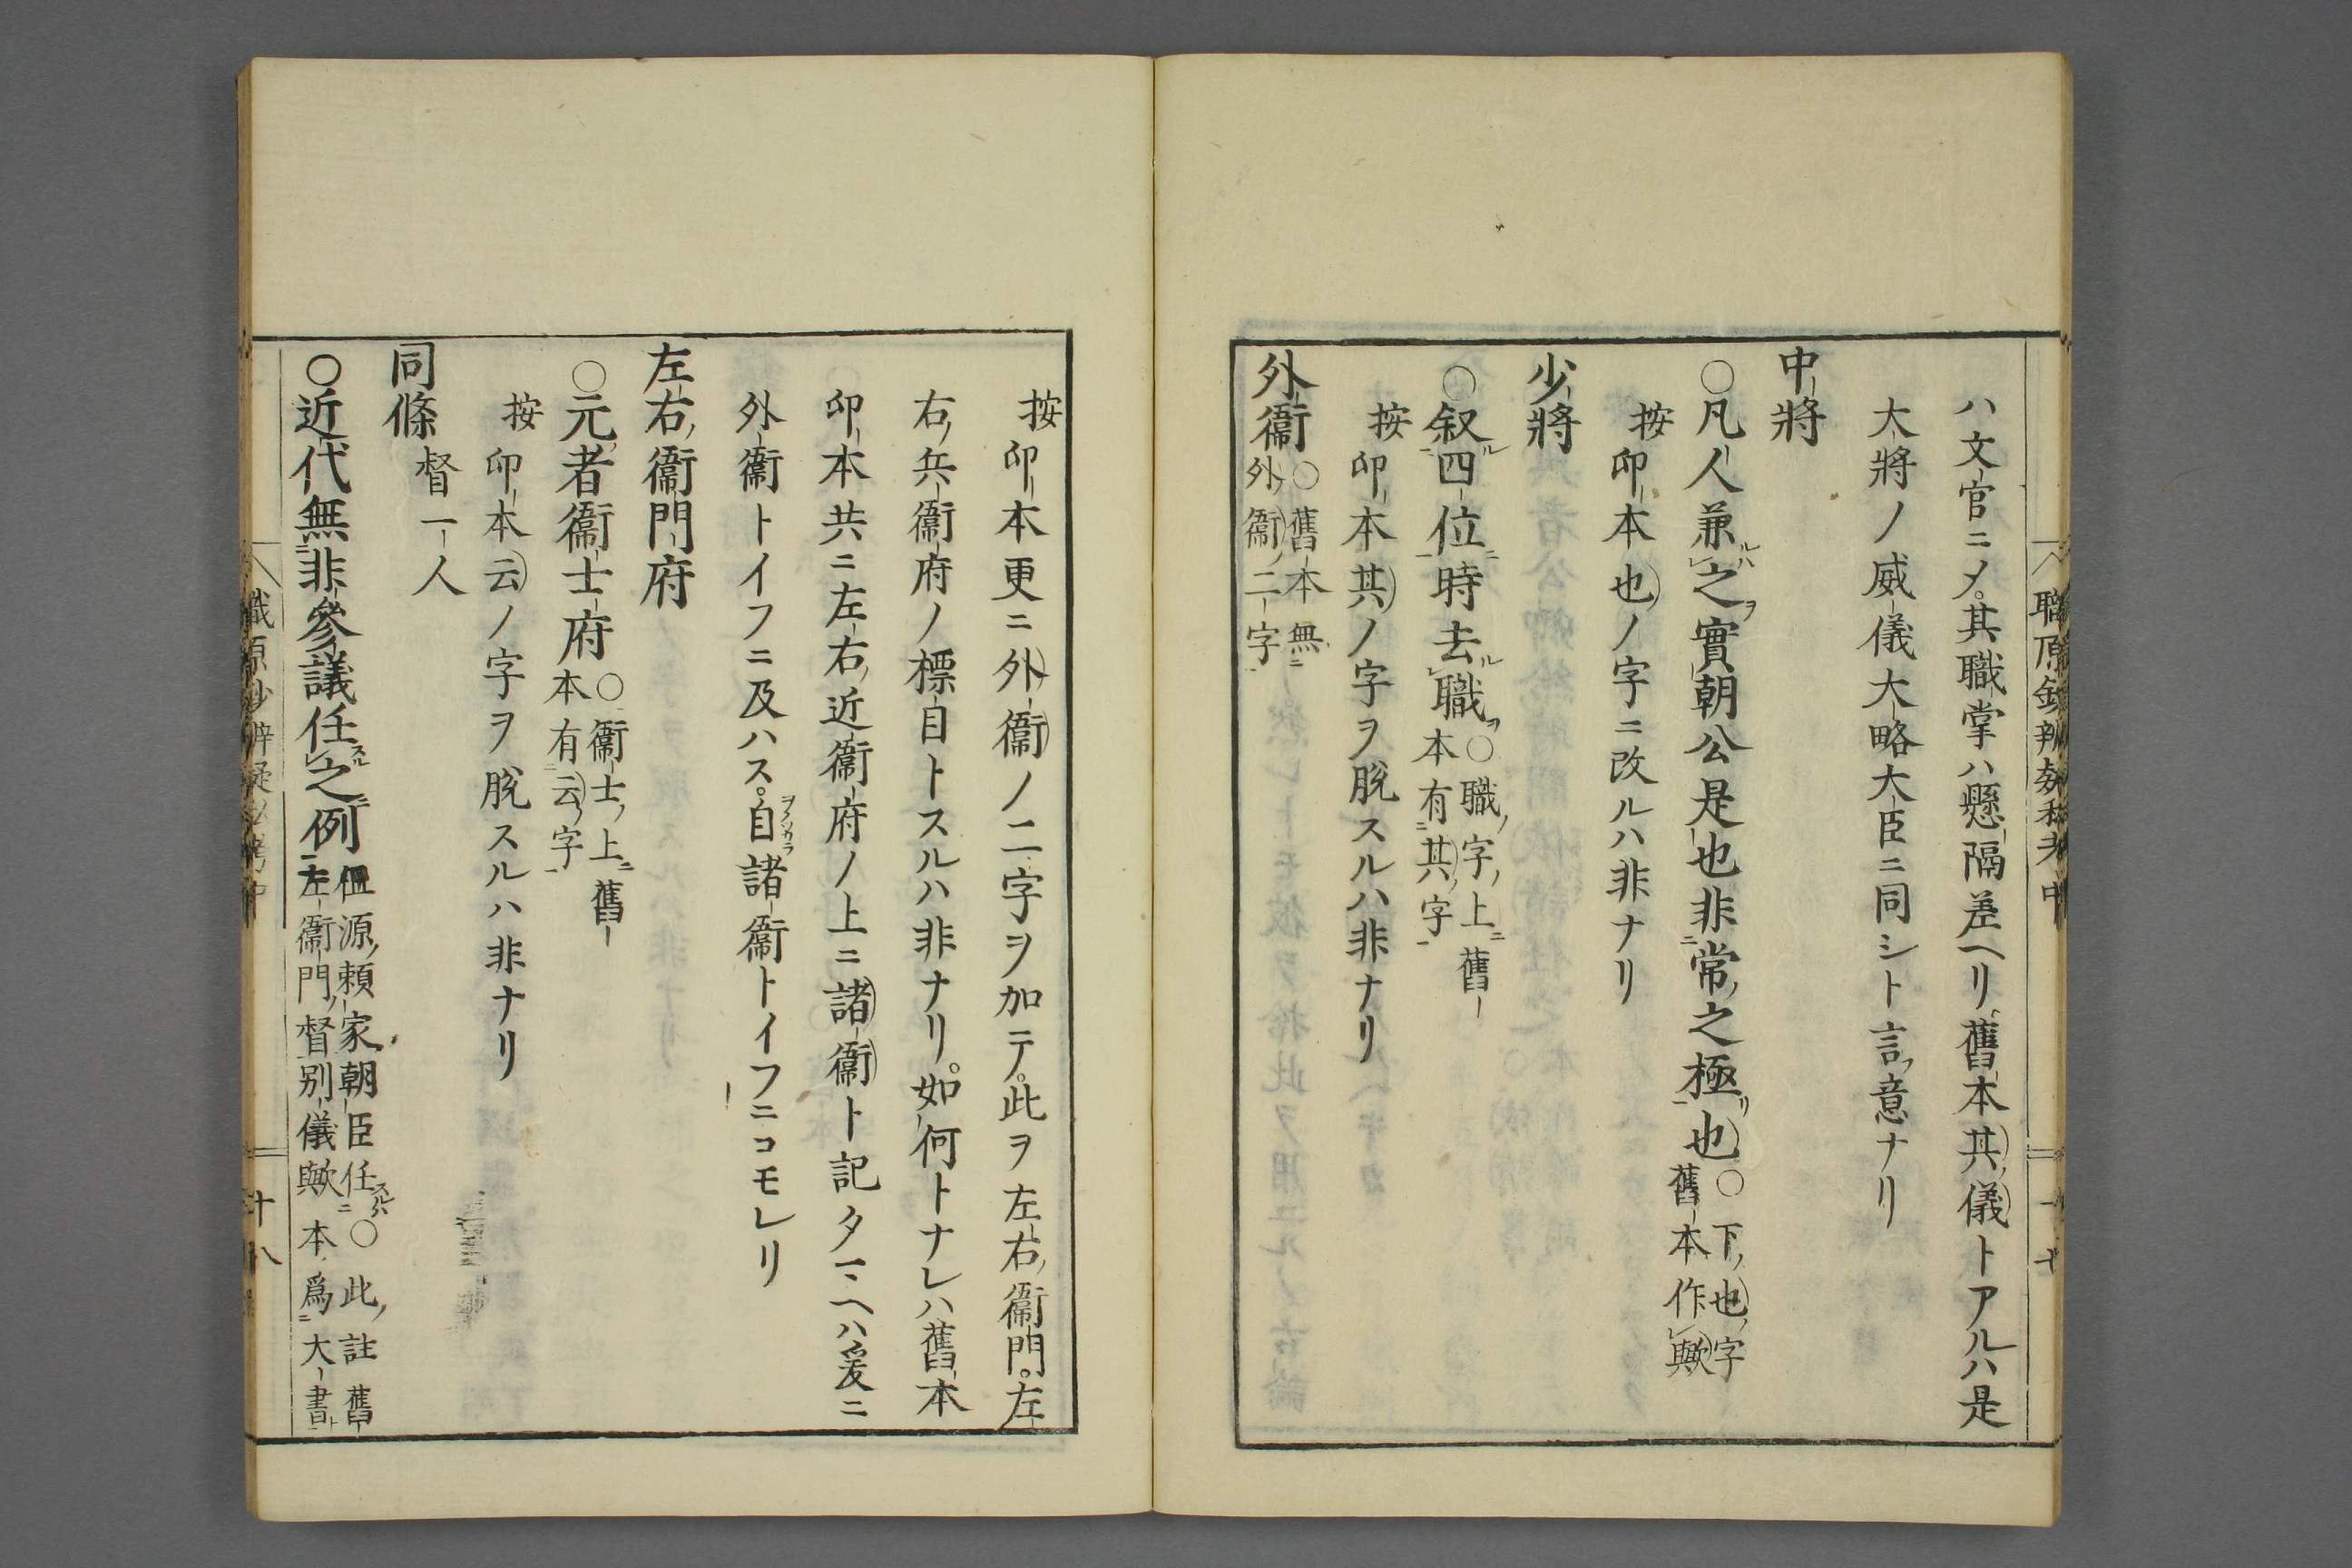 ハ文官ニメ。其職掌ハ懸隔差ヘリ舊本其儀トアルハ是
大將ノ威儀大略大臣ニ同シト言意ナリ
中將
○凡人兼ルハ之ヲ實朝公是也非常之極也○下也字舊本作歟
按印本也ノ字ニ改ルハ非ナリ
少將
○叙ル四位ニ時去ル職ヲ○職字上舊本有其字
按印本其ノ字ヲ脱スルハ非ナリ
外衞○舊本無外衞二字
按印本更ニ外衞ノ二字ヲ加テ。此ヲ左右衞門。左
右兵衞府ノ標目トスルハ非ナリ。如何トナレハ舊本
印本共ニ左右近衞府ノ上ニ諸衞ト記タマヘハ爰ニ
外衞トイフニ及ハス。自諸衞トイフニコモレリ
左右衞門府
○元者衞士府○衞士上舊本有云字
按印本云ノ字ヲ脱スルハ非ナリ
同條督一人
○近代無非參議任スル之例但源頼家朝臣任スルハ左衞門督別儀歟○此註舊本爲大書
職原鈔辨疑私考中
十八